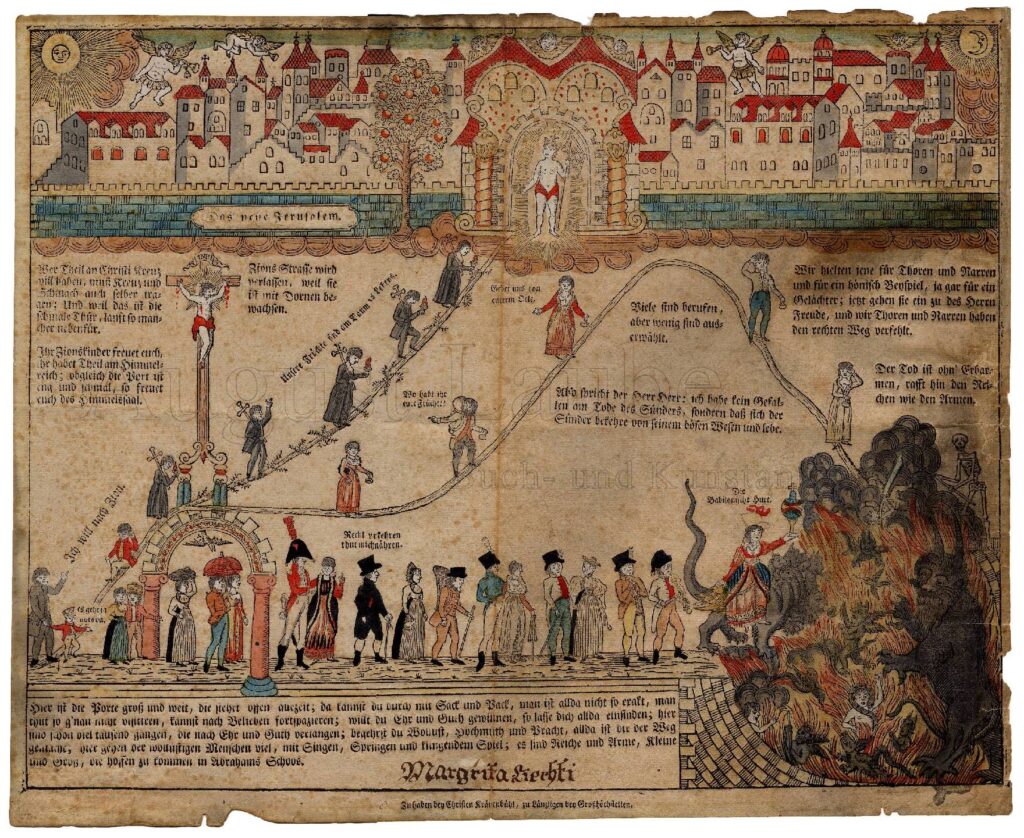 Das neue Jerusalem.
Wer Theil an Christi Kreuz
will haben, muß Kreuz und
Schmach auch selber tra-
gen; Und weil das ist die
schmale Thür, lauft so man-
cher nebenfür.
Ihr Zionskinder freuet euch,
ihr habet Theil am Himmel-
reich; obgleich die Port ist
eng und schmal, so freuet
euch des Himmelssaal.
Zions Strasse wird
verlassen, weil sie
ist mit Dornen be-
wachsen.
Unsere Früchte sind
Gebet uns von
eurem Oele,
Viele sind berufen,
aber wenig sind aus-
erwählt.
Wir hielten jene für Thoren und Narren
und für ein hönisch Beyspiel, ja gar für ein
Gelächter; jetzt gehen sie ein zu des Herrn
Freude, und wir Thoren und Narren haben
den rechten Weg verfehlt.
Der Tod ist ohn Erbar-
men, rafft hin den Rei-
chen wie den Armen.
Wo habt ihr
eure Früchte?
spricht der Herr Herr: ich habe kein Gefal-
len am Tode des Sünders, sondern daß sich der
Sünder bekehre von seinem bösen Wesen und lebe.
August Laube
Buch- und Kunstan
Ich will nach Zion.
Die
Babilonische Hure.
Hier ist die Porte groß und weit, die stehet offen allezeit; da kannst du durch mit Sack und Pack, man ist allda nicht so exakt, man
thut so g'nau nicht visitiren, kannst nach Belieben fortspazieren; willt du Ehr und Guth gewinnen, so lasse dich allda einfinden; hier
sind schon viel tausend gangen, die nach Ehr und Guth verlangen; begehrst du Wollust, Hochmuth und Pracht, allda ist die der Weg
gemacht; hier gehen der wollüstigen Menschen viel, mit Singen, Springen und klingendem Spiel; es sind Reiche und Arme, Kleine
und Groß, die hoffen zu kommen in Abrahams Schoos.
Margrita
Zu haben bey Christen Krähenbühl, zu Länzligen bey Großhöchstetten.